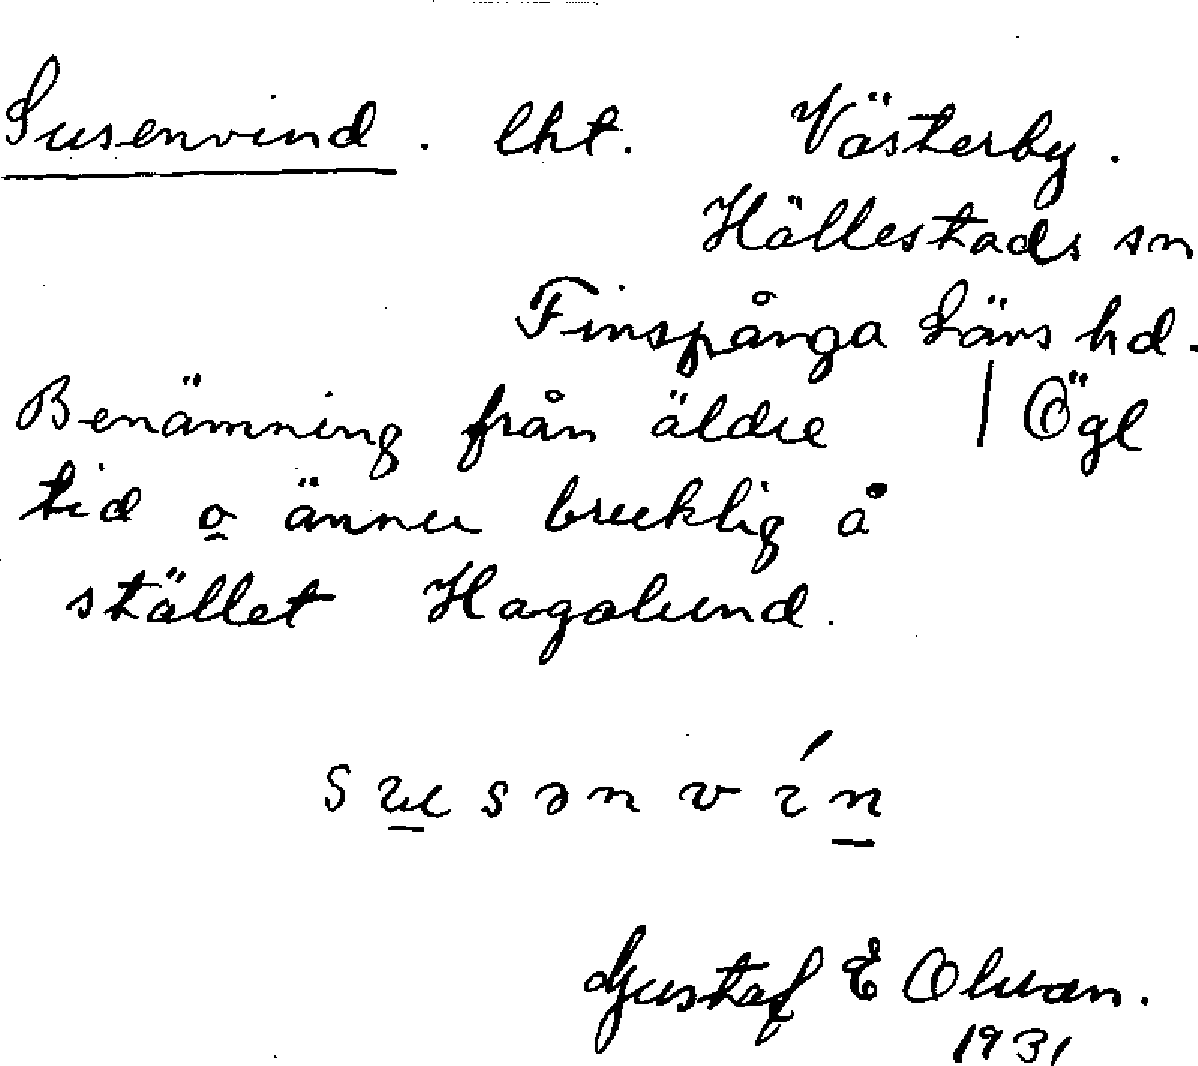 Susenvind. lht. Västerby.
Hällestads sn
Finspånga Läns hd.
Benämning från äldre | Ögl
tid o ännu bruklig å
stället Hagalund.
susənvín
Gustaf E Olsson.
1931